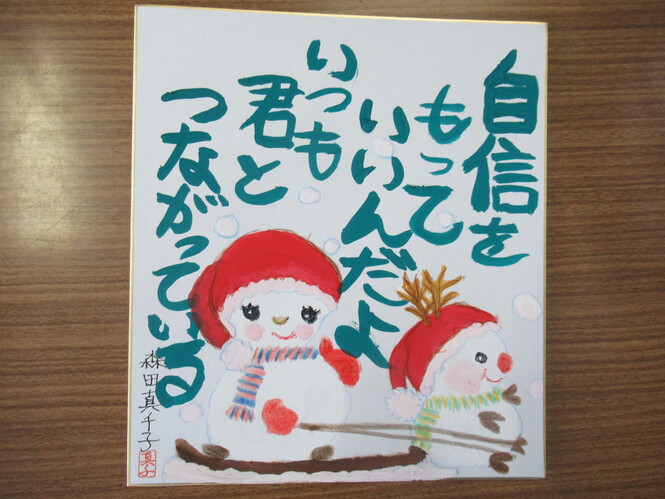 自信を
もって
いいんだよ
いつも
君と
つながっている
森田真千子